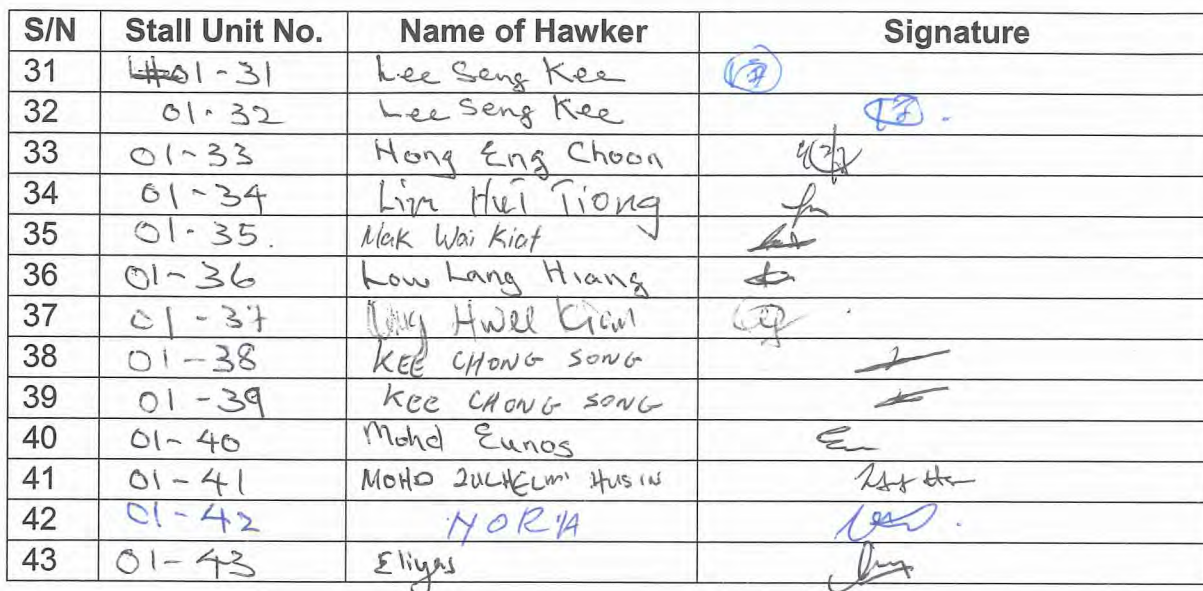 S/N Stall Unit No. Name of Hawker Signature
31 01-31 Lee Seng Kee
32 01-32 Lee Seng Kee
33 01-33 Hong Eng Choon
34 01-34 Lim Hui Tiong
35 01-35. Mak Wai Kiat
36 01-36 Low Lang Hiang
37 01-37 Hwee Kiam
38 01-38 KEE CHONG SONG
39 01-39 KEE CHONG SONG
40 01-40 Mohd Eunos
41 01-41 MOHD ZULHELMI HUSIN
42 01-42 NORIA
43 01-43 Eliyas